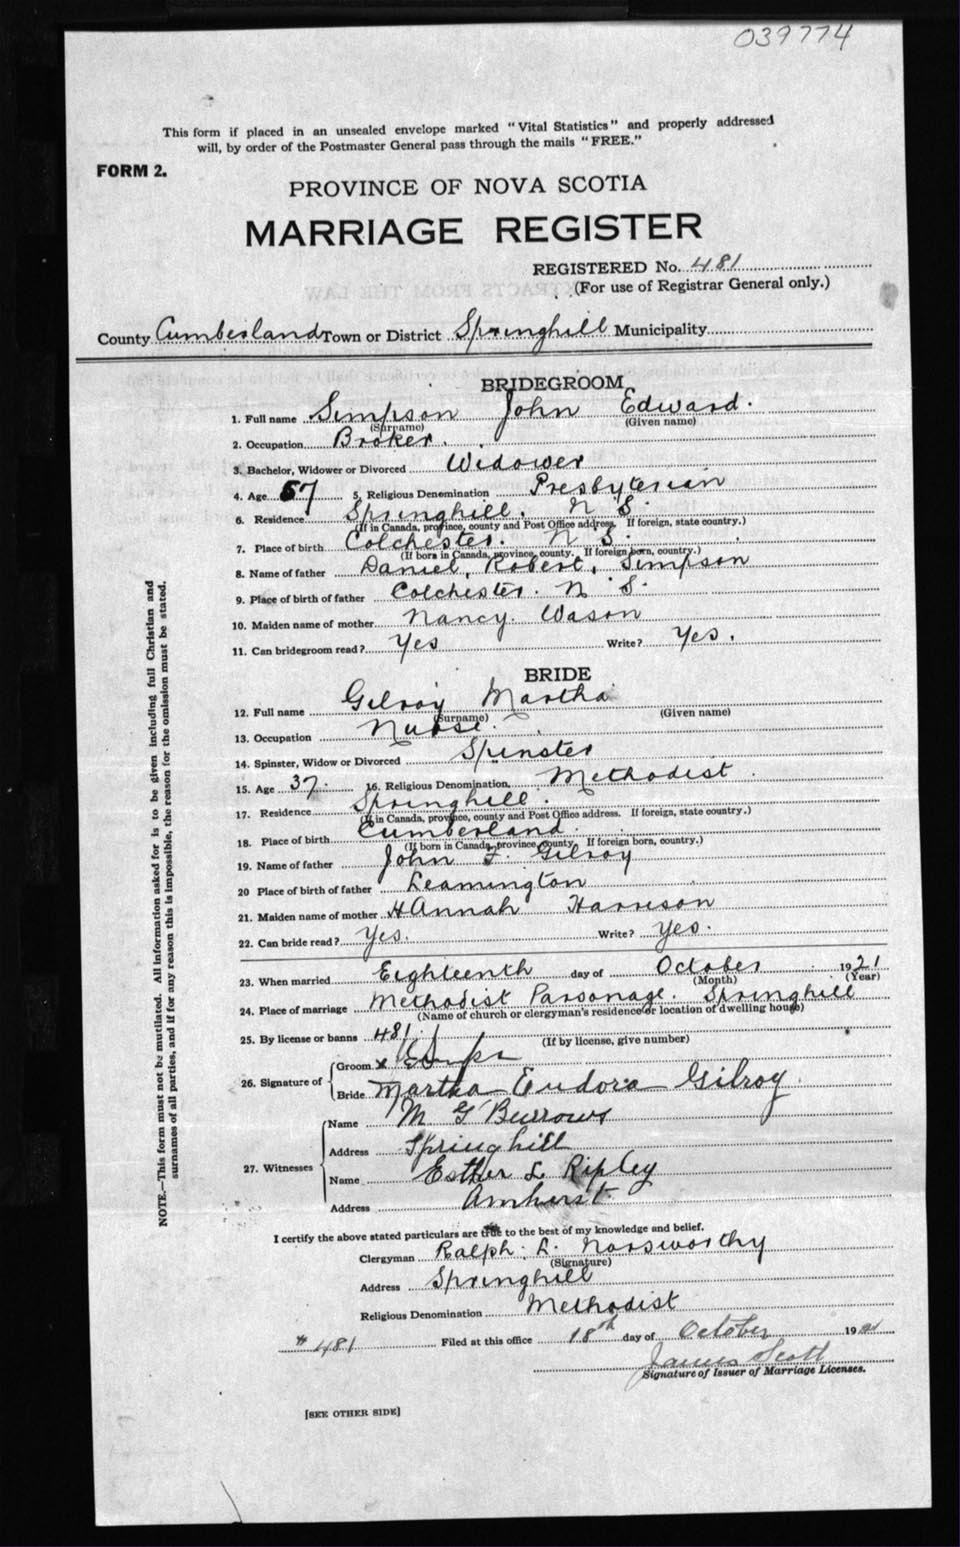 039774
This form if placed in an unsealed envelope marked "Vital Statistics" and properly addressed
will, by order of the Postmaster General pass through the mails "FREE."
FORM 2.
PROVINCE OF NOVA SCOTIA
MARRIAGE REGISTER
REGISTERED No. 481
(For use of Registrar General only.)
County Cumberland Town or District Springhill Municipality
BRIDEGROOM
1. Full name Simpson John Edward.
(Surname) (Given name)
2. Occupation Broker.
3. Bachelor, Widower or Divorced Widower
4. Age 57 5. Religious Denomination Presbyterian
6. Residence Springhill. N S.
(If in Canada, province, county and Post Office address. If foreign, state country.)
7. Place of birth Colchester. N S.
(If born in Canada, province, county. If foreign born, country.)
8. Name of father Daniel, Robert, Simpson
9. Place of birth of father Colchester. N S.
10. Maiden name of mother Nancy. Wason
11. Can bridegroom read? Yes Write? Yes.
BRIDE
12. Full name Gilroy Martha
(Surname) (Given name)
13. Occupation Nurse.
14. Spinster, Widow or Divorced Spinster
15. Age 37. 16. Religious Denomination Methodist.
17. Residence Springhill.
(If in Canada, province, county and Post Office address. If foreign, state country.)
18. Place of birth Cumberland.
(If born in Canada, province, county. If foreign born, country.)
19. Name of father John F. Gilroy
20 Place of birth of father Leamington
21. Maiden name of mother HAnnah Harrison
22. Can bride read? Yes. Write? Yes.
23. When married Eighteenth day of October 1921
(Month) (Year)
24. Place of marriage Methodist Parsonage. Springhill
(Name of church or clergyman's residence or location of dwelling house)
25. By license or banns 481.
(If by license, give number)
26. Signature of
Groom x
Bride Martha Eudora Gilroy.
27. Witnesses
Name M G Burrows
Address Springhill
Name Esther L Ripley
Address Amherst.
I certify the above stated particulars are true to the best of my knowledge and belief.
Clergyman Ralph. L. Norsworthy
(Signature)
Address Springhill
Religious Denomination Methodist
# 481 Filed at this office 18th day of October 1921
James Scott
Signature of Issuer of Marriage Licenses.
[SEE OTHER SIDE]
NOTE.—This form must not be mutilated. All information asked for is to be given including full Christian and
surnames of all parties, and if for any reason this is impossible, the reason for the omission must be stated.